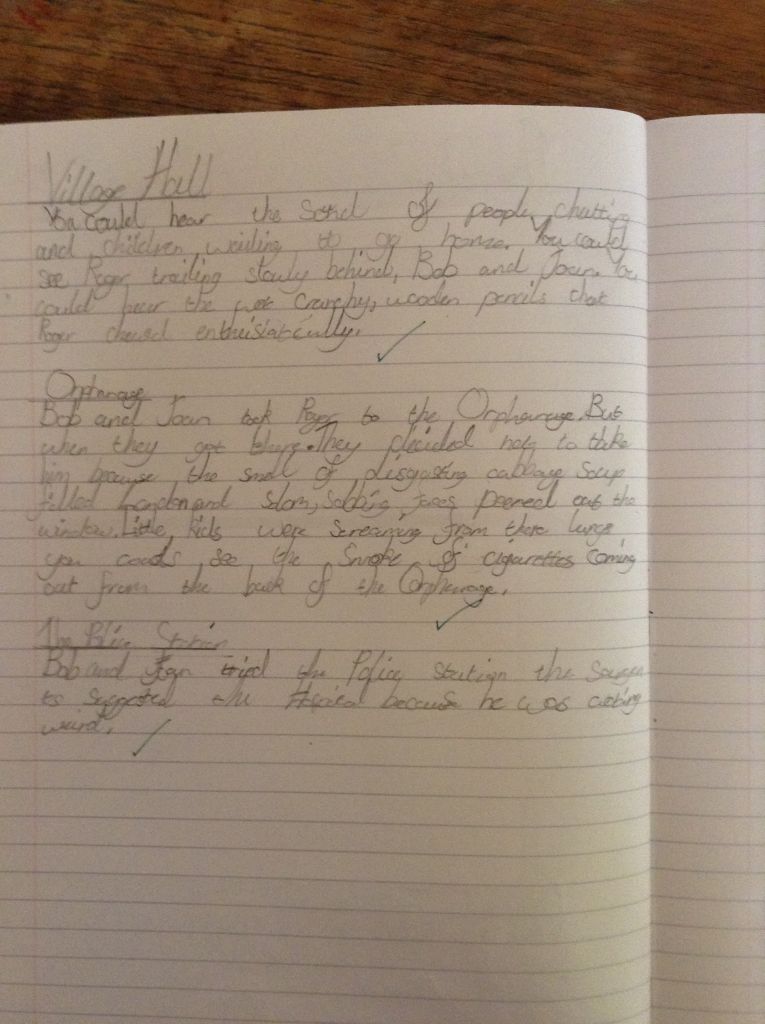 Village Hall
You could hear the Sound of people chatting
and children waiting to go home. You could
see Roger trailing slowly behind, Bob and Joan. You
could hear the wet crunchy, wooden pencils that
Roger chewed
Orphanage
Bob and Joan took Roger to the Orphanage. But
when they got there. They decided not to take
him because the smell of disgasting cabbage Soup
filled London and Solom, Sobbing faces peered out the
window. Little kids were Screaming from there lungs
you could see the Smoke of cigarettes Coming
out from the back of the Orphanage.
The Police Station
Bob and Joan tried the Police station the
suggested the because he was acting
weird.